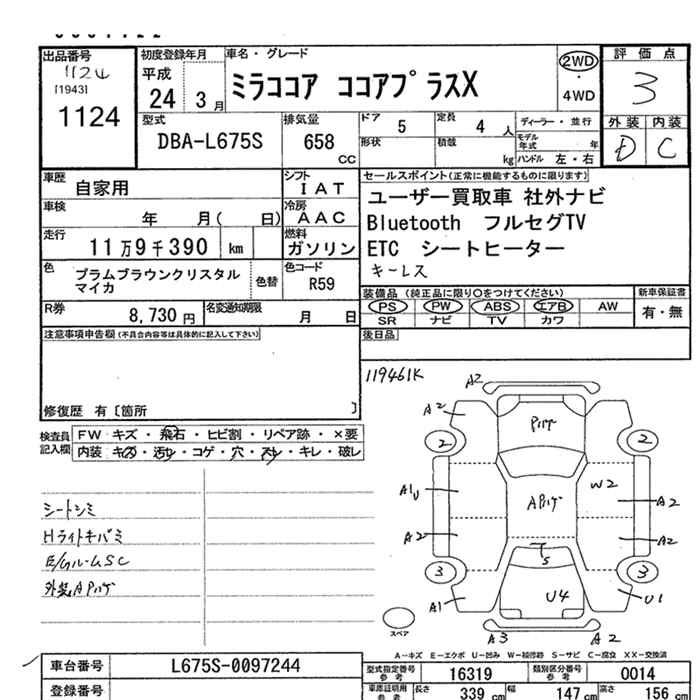 出品番号
1124
[1943]
1124
初度登録年月
平成
24 3月
車名・グレード
ミラココア ココアプラスX
2WD
・
4WD
評価点
3
型式
DBA-L675S
排気量
658
CC
ドア
5
定員
4 人
ディーラー・並行
形状
積載
kg
モデル年式
年
ハンドル 左・右
外装 内装
D C
車歴
自家用
シフト
IAT
車検
年 月( 日)
冷房
AAC
走行
11万9千390 km
燃料
ガソリン
色
プラムブラウンクリスタル
マイカ
色替
色コード
R59
R券
8,730 円
名変通知期限
月 日
セールスポイント(正常に機能するものに限ります)
ユーザー買取車 社外ナビ
Bluetooth フルセグTV
ETC シートヒーター
キーレス
装備品(純正品に限り○をつけてください)
新車保証書
PS PW ABS エアB AW
SR ナビ TV カワ
有・無
後日品
注意事項申告欄(不具合内容等は具体的に記入して下さい)
修復歴 有〔箇所 〕
検査員
記入欄
FW キズ・飛石・ヒビ割・リペア跡・×要
内装 キズ・汚れ・コゲ・穴・スレ・キレ・破レ
シートシミ
Hライトキバミ
E/GルームSC
外装Aハゲ
119461K
A2
A2
Pハゲ
2
2
A1
U
W2
Aハゲ
A2
A2
A2
S
3
3
U4
A1
U1
A3
A2
スペア
A-キズ E-エクボ U-凹み W-補修跡 S-サビ C-腐食 XX-交換済
車台番号
L675S-0097244
登録番号
型式指定番号
参考
16319
類別区分番号
参考
0014
車庫証明用
参考
長さ
339 cm
幅
147 cm
高さ
156 cm